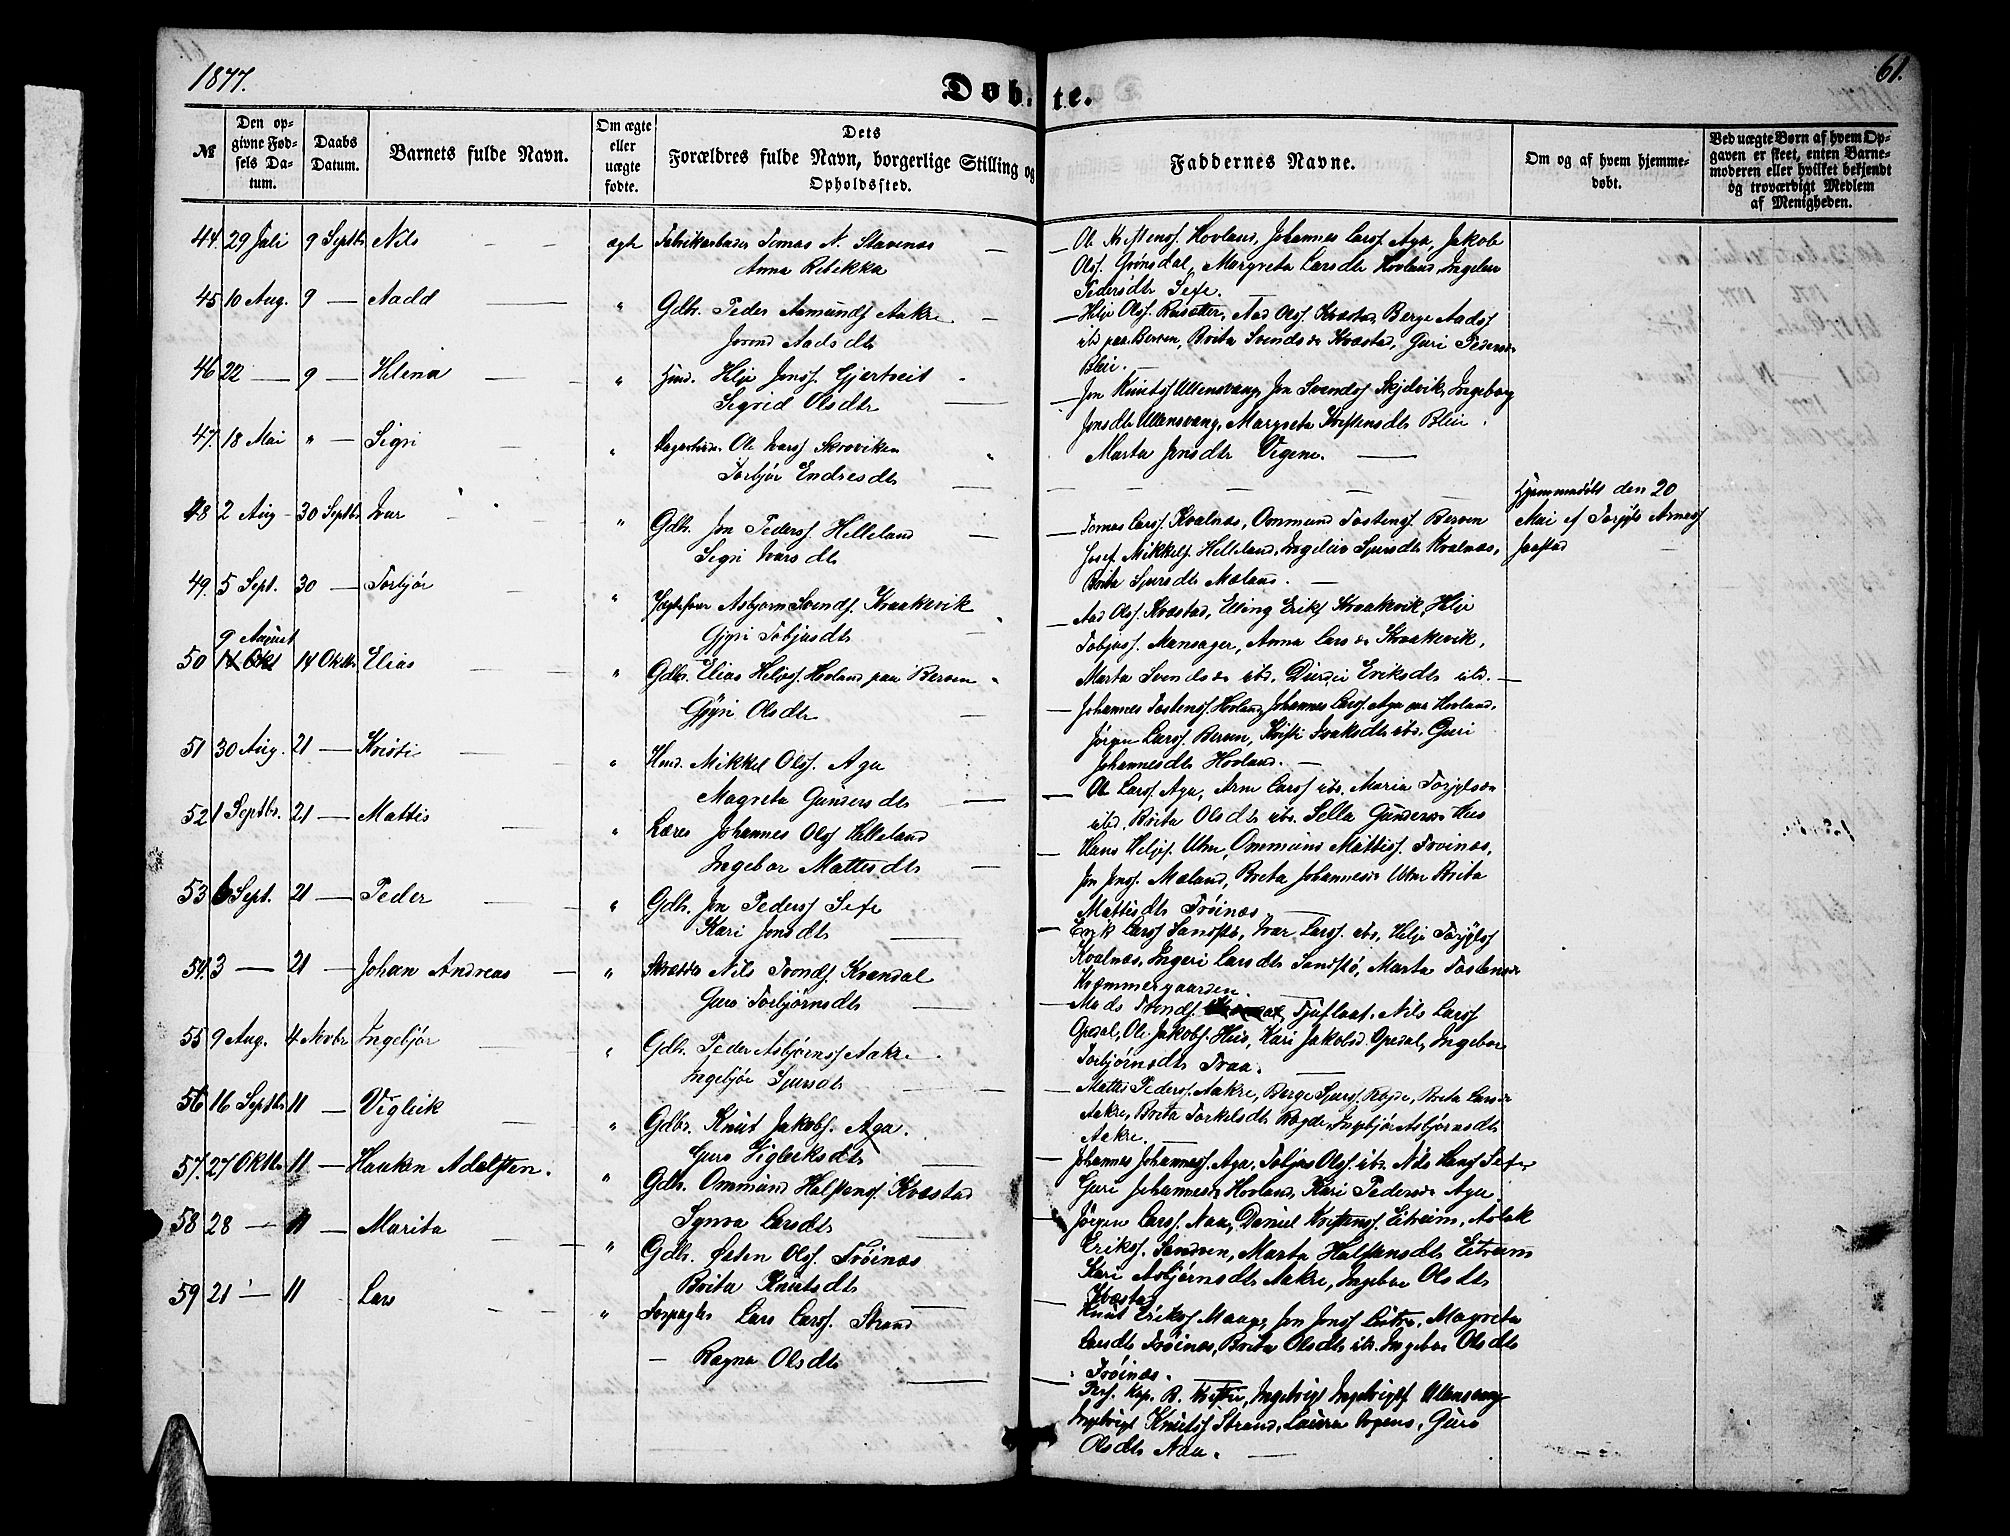 1877.
Døbte.
61.
№
Den op-
givne Fød-
sels Da-
tum.
Daabs
Datum.
Barnets fulde Navn.
Om ægte
eller
uægte
fødte.
Dets
Forældres fulde Navn, borgerlige Stilling og
Opholdssted.
Faddernes Navne.
Om og af hvem hjemme-
døbt.
Ved uægte Børn af hvem Op-
gaven er skeet, enten Barne-
moderen eller hvilket bekjendt
og troværdigt Medlem
af Menigheden.
44. 29 Juli 9 Septbr Nils — — ægte Fabrikarbeider Tomas N. Stavenæs —
Anna Rebekka
— Ole Kristens. Hovland, Johannes Larss. Aga, Jakob
Olss. Grønsdal, Margreta Larsdtr Hovland, Ingeleiv
Pedersdtr Sexe. —
45 10 Aug. 9 — Aadd — " Gdbr. Peder Aamunds. Aakre —
Jorond Aadsdtr
— Helje Olss. Rasætter, Aad Olss. Kvæstad, Berge Aadss
ibd paa Berven, Brita Svendsdr Kvæstad, Guri Pedersdr
Bleie. —
46 22 — 9 — Helena — " Hmd. Helje Jonss. Gjertveit
Sigrid Olsdtr —
— Jon Knutss Ullensvang, Jon Svendss Skjelvik, Ingeborg
Jonsdtr Ullensvang, Margreta Kristensdtr Bleie.
Marta Jonsdtr Vigene. —
47. 18 Mai " — Sigri — " Ole Ivarss Skroviken
Torbjør Endresdtr —
— — — — —
Hjemmedøbt den 20
Mai af Torgils Arness
Jaastad —
48 2 Aug — 30 Septbr Ivar " Gdbr. Jon Peders. Helleland —
Sigri Ivarsdtr
— Tomas Larss. Kvalnæs, Ommund Tostens. Berven
Josef Mikkels. Helleland, Ingeleiv Sjursdtr Kvalnæs,
Brita Sjursdtr Mæland. —
49. 5 Sept. 30 — Torbjør — " Asbjørn Svends. Kraakevik
Gjyri Tobjasdtr
— Aad Olss. Kvæstad, Elling Erikss Kraakevik, Helje
Tobjass. Mansager, Anna Larsdr Kraakevik,
Marta Svendsdr ibd. Durdei Eriksdtr ibd. —
9 August
50 14 Okt 14 Oktbr Elias — " Gdbr. Elias Heljess. Hovland paa Berven
Gjyri Olsdtr —
— Johannes Tostens. Hovland, Johannes Larss. Aga paa Hovland,
Jørgen Larss. Berven, Kristi Isaksdtr ibd. Guri
Johannesdtr Hovland. —
51 30 Aug. 21 — Kristi — " Hmd. Mikkel Olss. Aga
Magreta Gundersdtr —
— Ole Larss Aga, Arne Larss ibd. Maria Torgilsdr
ibd. Brita Olsdtr ibd. Sella Gundersdr Hus
52 1 Septbr. 21 — Mattis — " Lærer Johannes Olss Helleland
Ingebor Mattesdtr —
— Hans Heljess. Utne, Ommund Mattiss. Trøinæs,
Jon Jonss. Mæland, Brita Johannesdr Utne Brita
Mattisdtr Trøinæs —
53 6 Sept. 21 — Peder — " Gdbr. Jon Pederss Sexe
Kari Jonsdtr —
— Erik Larss Sandstø, Ivar Larss. ibd. Helje Torgilss
Kvalnæs, Ingeri Larsdtr Sandstø, Marta Tostensdr
Kræmmergaarden. —
54. 3 — 21 — Johan Andreas — " Skrædder Nils Tronds. Kvandal
Guro Torbjørnsdtr —
— Mads Tronds. Tjuflaat, Nils Larss
Opedal, Ole Jakobs. Hus, Kari Jakobsd Opedal, Ingebor
Torbjørnsdtr Traa. —
55 9 Aug. 4 Novbr Ingebjør — " Gdbr. Peder Asbjørnss Aakre.
Ingebjør Sjursdtr —
— Mattis Pederss. Aakre, Berge Sjurss. Rogde, Brita Larsdr
Aakre, Brita Torkelsdtr Rogde, Ingebjør Asbjørnsdtr
Aakre. —
56 16 Septbr 11 — Vigleik — " Gdbr. Knut Jakobs. Aga.
Guro Vigleiksdtr —
— Johannes Johanness. Aga, Tobjas Olss. ibd. Nils Hanss Sexe
Guri Johannesdr Hovland, Kari Pedersdr Aga.
57. 27 Oktbr 11 — Haaken Adelsten. " Gdbr. Ommund Halstens. Kvæstad
Synva Larsdtr —
— Jørgen Larss. Naa, Daniel Kristens. Eitreim, Aslak
Erikss. Sandven, Marta Halstensdtr Eitreim
Kari Asbjørnsdtr Aakre, Ingebor Olsdtr
Kvæstad
58 28 — 11 — Marita — " Gdbr. Østen Olss. Trøinæs
Brita Knutsdtr —
— Knut Erikss Maage, Jon Jonss Lutro, Magreta
Larsdtr Trøinæs, Brita Olsdtr ibd. Ingebor Olsdtr
Trøinæs. —
59 21 — 11 Lars — " Forpagter Lars Larss. Strand
— Ragna Olsdtr —
Pers. Kap. Ingebrigt Ingebrigtss Ullensvang
Ingebrigt Knutss Strand, Laura Guro
Olsdtr Naa. —